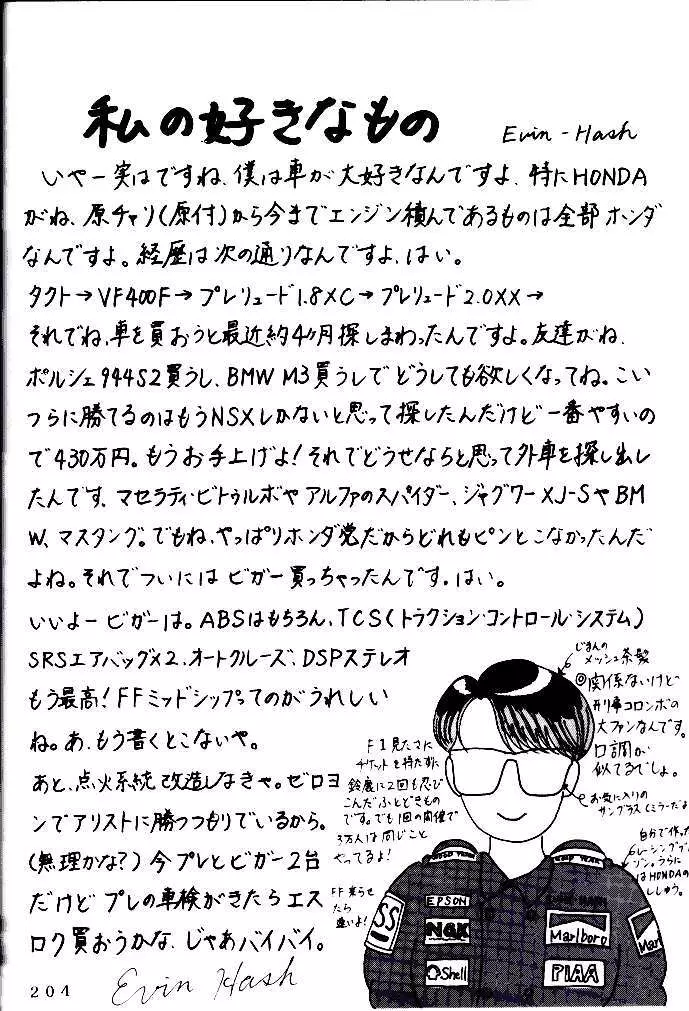 私の好きなもの
Evin-Hash
いやー実はですね、僕は車が大好きなんですよ、特にHONDA
がね、原チャリ(原付)から今までエンジン積んであるものは全部ホンダ
なんですよ。経歴は次の通りなんですよ、はい。
タクト→VF400F→プレリュード1.8XC→プレリュード2.0XX→
それでね、車を買おうと最近約4ヶ月探しまわったんですよ。友達がね、
ポルシェ944S2買うし、BMW M3買うしでどうしても欲しくなってね。こい
つらに勝てるのはもうNSXしかないと思って探したんだけど一番やすいの
で430万円。もうお手上げよ!それでどうせならと思って外車を探し出し
たんです、マセラティ・ビトゥルボやアルファのスパイダー、ジャグワーXJ-SやBM
W、マスタング。でもね、やっぱりホンダ党だからどれもピンとこなかったんだ
よね。それでついにはビガー買っちゃったんです。はい。
いいよービガーは。ABSはもちろん、TCS(トラクション・コントロール・システム)
SRSエアバッグ×2、オートクルーズ、DSPステレオ
もう最高!FFミッドシップってのがうれしい
ね。あ、もう書くとこないや。
あと、点火系統改造しなきゃ。ゼロヨ
ンでアリストに勝つつもりでいるから。
(無理かな?)今プレとビガー2台
だけどプレの車検がきたらエス
ロク買おうかな、じゃあバイバイ。
Evin Hash
204
じまんの
メッシュ茶髪
◎関係ないけど
刑事コロンボの
大ファンなんです。
口調が
似てるでしょ。
お気に入りの
サングラス(ミラーだよ
F1見たさに
チケットを持たずに
鈴鹿に2回も忍び
こんだふとどきもの
です。でも1回の開催で
3万人は同じこと
やってるよ!
FF乗らせ
たら
速いよ!
自分で作った
レーシングブ
ゾン。うらに
はHONDAの
ししゅう。
EPSON
NGK
Shell
Marlboro
PIAA
SS
Marl